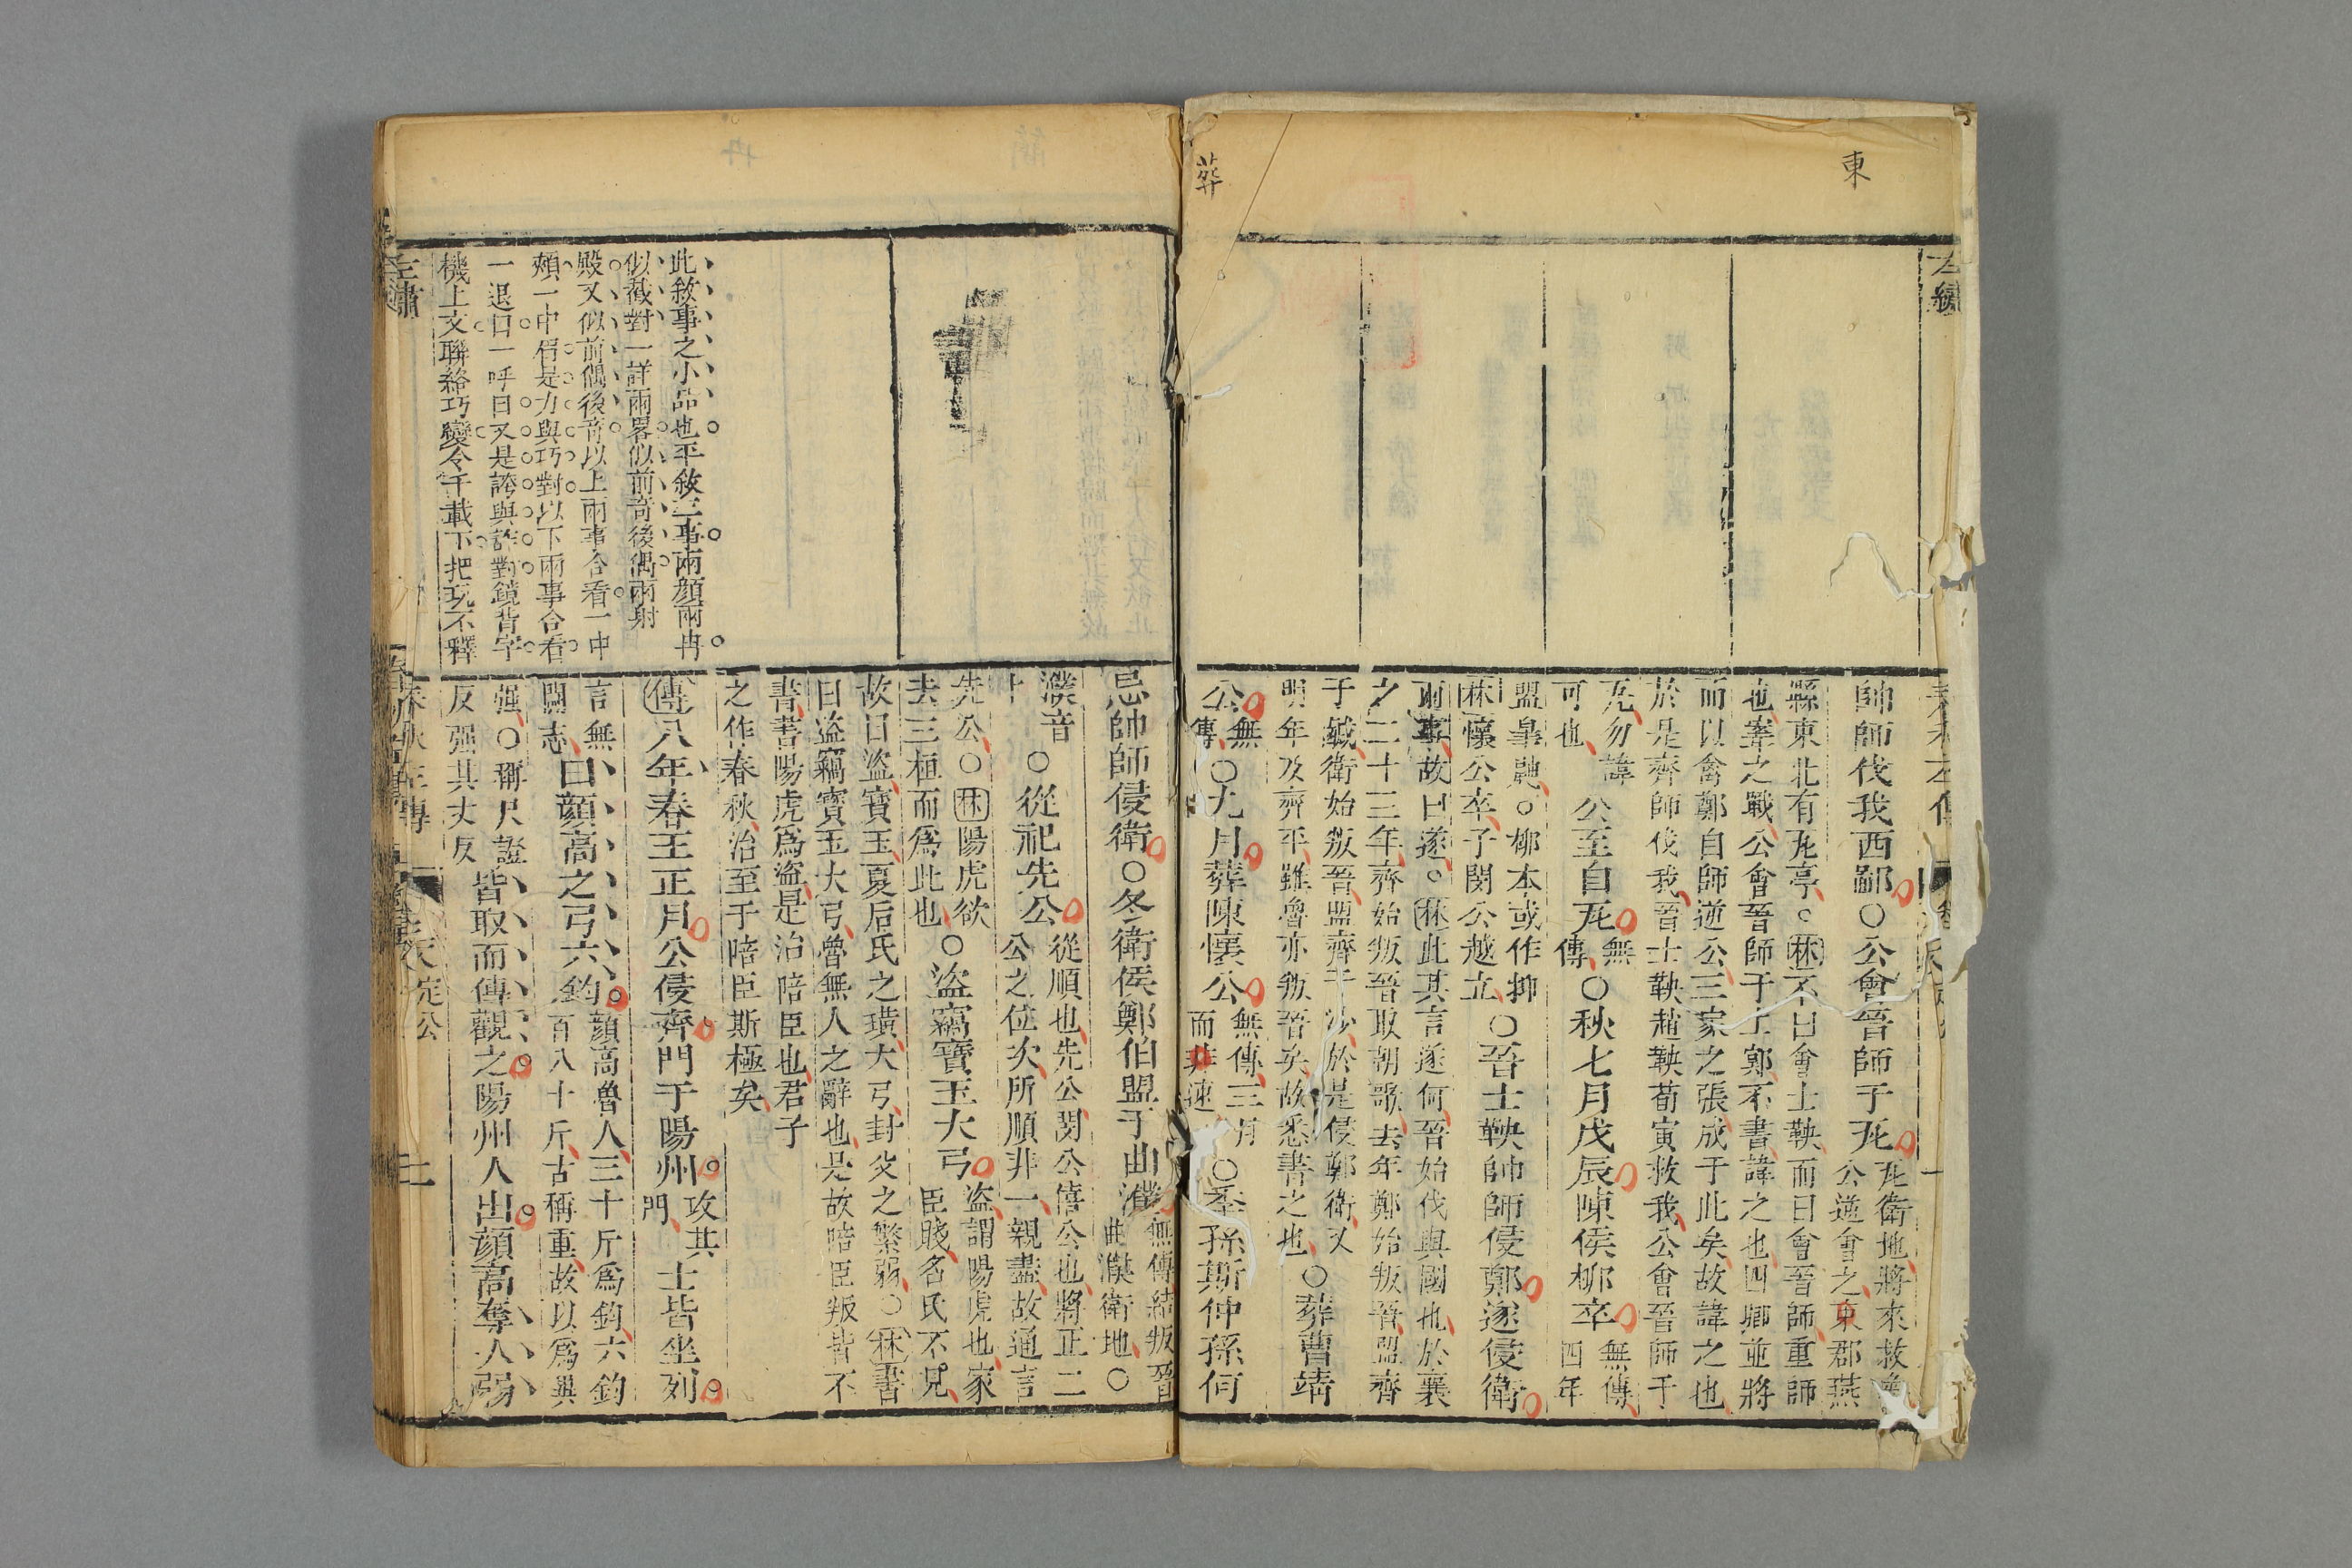 東
葬
左繡
帥師伐我西鄙○公會晉師于瓦
瓦衛地將來救魯
公逆會之東郡燕
縣東北有瓦亭○林不曰會士鞅而曰會晉師重師
也牽之戰公會晉師于上鄍不書諱之也四卿並將
而以禽鄭自師逆公三家之張成于此矣故諱之也
於是齊師伐我晉士鞅趙鞅荀寅救我公會晉師于
瓦勿諱
可也
公至自瓦
無
傳
○秋七月戊辰陳侯柳卒
無傳
四年
盟皋鼬○柳本或作抑
林懷公卒子閔公越立
○晉士鞅帥師侵鄭遂侵衛
兩事故曰遂○林此其言遂何晉始伐與國也於襄
之二十三年齊始叛晉取朝歌去年鄭始叛晉盟齊
于鹹衛始叛晉盟齊于沙於是侵鄭衛又
明年及齊平雖魯亦叛晉矣故悉書之也
○葬曹靖
公
無
傳
○九月葬陳懷公
無傳三月
而葬速
○季孫斯仲孫何
忌帥師侵衛○冬衛侯鄭伯盟于曲濮
無傳結叛晉
曲濮衛地○
濮音
卜
○從祀先公
從順也先公閔公僖公也將正二
公之位次所順非一親盡故通言
先公○林陽虎欲
去三桓而爲此也
○盜竊寶玉大弓
盜謂陽虎也家
臣賤名氏不見
故曰盜寶玉夏后氏之璜大弓封父之繁弱○林書
曰盜竊寶玉大弓魯無人之辭也是故陪臣叛皆不
書書陽虎爲盜是治陪臣也君子
之作春秋治至于陪臣斯極矣
傳八年春王正月公侵齊門于陽州
攻其
門
士皆坐列
言無
鬭志
曰顔高之弓六鈞
顔高魯人三十斤爲鈞六鈞
百八十斤古稱重故以爲異
强○稱尺證
反强其丈反
皆取而傳觀之陽州人出顔高奪人弱
此敘事之小品也平敘三事兩顔兩冉
似截對一詳兩畧似前奇後偶兩射
殿又似前偶後奇以上兩事合看一中
頰一中眉是力與巧對以下兩事合看
一退曰一呼曰又是誇與詐對鏡背字
機上文聯絡巧變令千載下把玩不釋
左繡
春秋左傳
定公
二